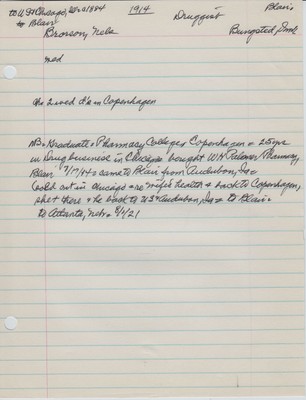 to U.S. Chicago, Ill 1914 Druggist Blair
to Blair
Bronson, Nels Bungsted, Den
med
the 2 used d's in Copenhagen
NB: Graduate Pharmacy College Copenhagen 25 yrs
in Drug business in Chicago bought W H Palmer Pharmacy,
Blair came to Blair from Audubon, Ia
Sold out in Chicago re wife's health & back to Copenhagen,
there & he back to US Audubon, Ia to Blair
to Atlanta, Nebr